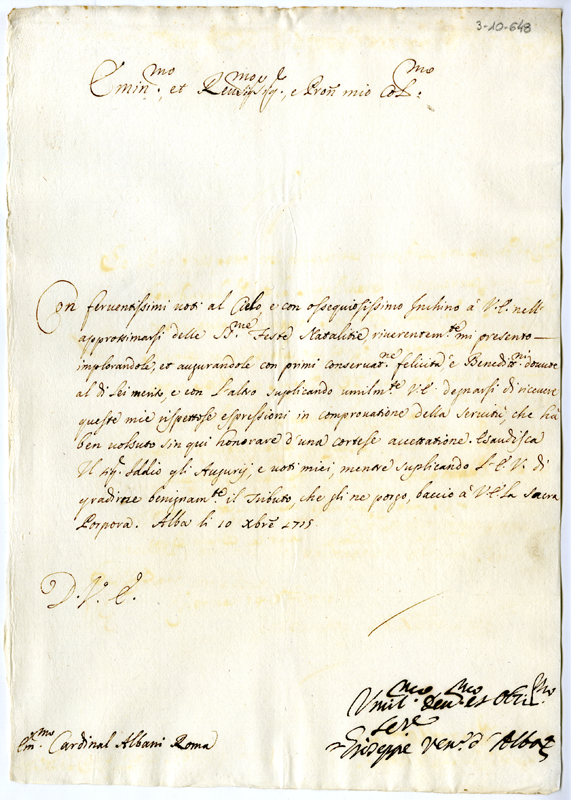 3-10-648
Emin.mo, et Reu.mo Sig.r, e Pron mio Col.mo:
Con feruentissimi uoti al Cielo, e con ossequiosissimo Inchino à V.E. nell
approssimarsi delle S.me Feste Natalitie riverentem.te mi presento —
implorandole, et augurandole con primi conservat.ne felicità è Benedit.ni douute
al di Lei merito, e con l'altro suplicando umilm.te V.E. degnarsi di riceuere
queste mie rispettose espressioni in comprouatione della Seruitù, che hà
ben uolsuto sin qui honorare d'una cortese accettatione. Esaudisca
Il Sig. Iddio gli Augurij, e uoti miei, mentre suplicando L'E.V. di
gradirne benignam.te il Tributo, che gli ne porgo, baccio à V.E. la Sacra
Porpora. Alba li 10 Xbre 1715
D. V.a E.a
Umil.mo Deu.mo et Obl.mo
Sere
Giuseppe Vesc.o d'Alba
Em.mo Cardinal Albani Roma